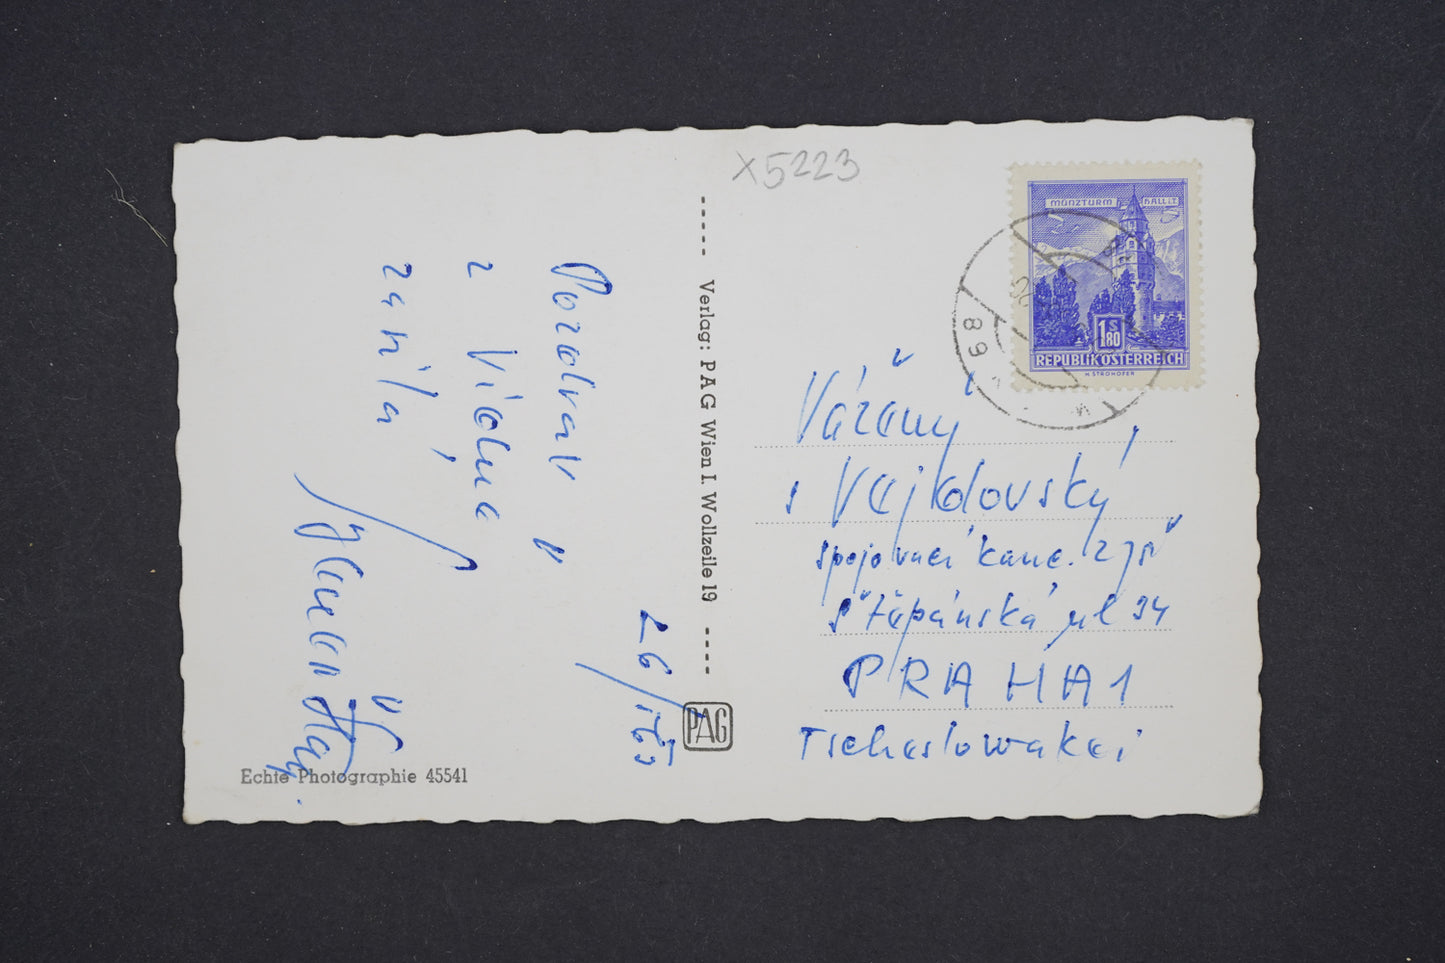 x5223
MÜNZTURM HALL i.T.
1 S 80
REPUBLIK ÖSTERREICH
H. STROHOFER
89
Verlag: PAG Wien I. Wollzeile 19
PAG
Echte Photographie 45541
Pozdrav
z Vídně
26/
Vážený
Vajdovský
spojovací
Štěpánská ul 34
PRAHA 1
Tschechoslowakei